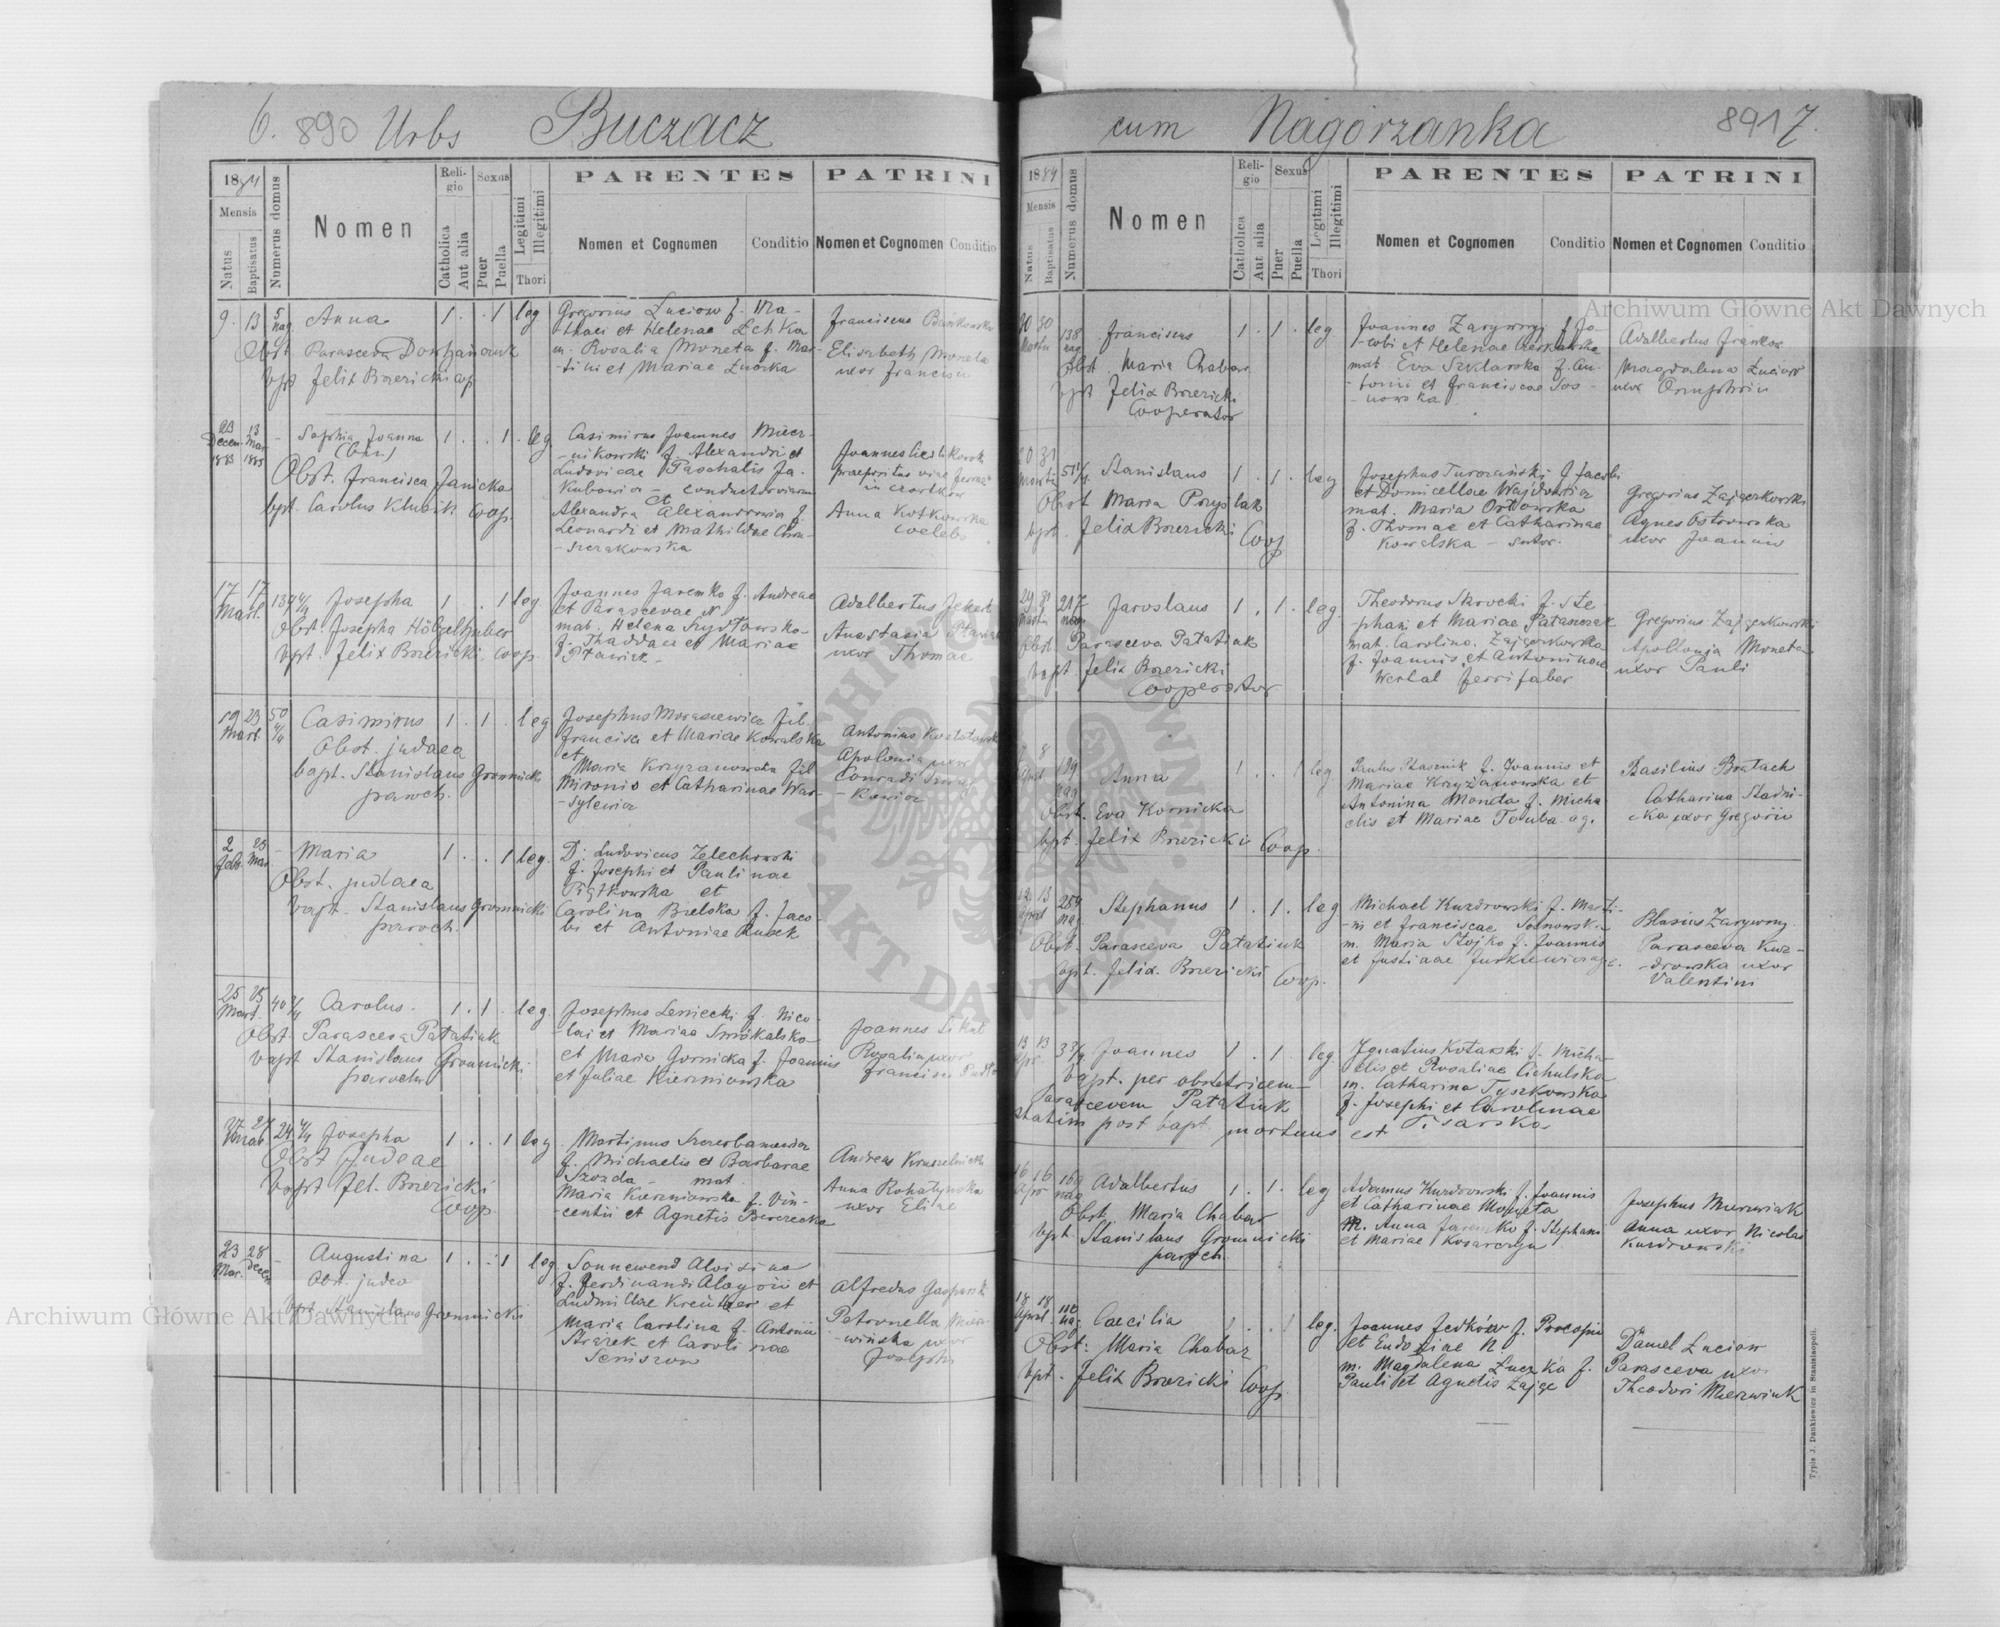 6. 890 Urbs Buczacz
1884
Mensis
Natus
Baptisatus
Numerus domus
Nomen
Religio
Catholica
Aut alia
Sexus
Puer
Puella
Legitimi
Illegitimi
Thori
PARENTES
Nomen et Cognomen
Conditio
PATRINI
Nomen et Cognomen
Conditio
9. 13 5 nag Anna 1 . . 1 leg
Obst Parasceva
bpt Felix Brzezicki Coop
Gregorius Luciow f. Ma-
-thaei et Helenae
m. Rosalia Moneta f. Mar-
-tini et Mariae
Franciscus
Elisabeth Moneta
uxor Francisci
23 Decem 1883 13 Mar 1885 - Sophia Joanna 1 . . 1 leg
(bin)
Obst. Francisca Janicka
bpt. Carolus Klubik Coop.
Casimirus Joannes Mier-
-nikowski f. Alexandri et
Ludovicae Paschalis Ja-
Kubowicz - conductor viarum
et
Alexandra Alexandrowicz f.
Leonardi et Mathildae
-szczakowska
Joannes
praepositus viae ferreae
in Czortków
Anna Kotkowska
coelebs
17 17 Mart. Josepha 1 . . 1 leg.
Obst. Josepha Hölzelhaber
bpt. Felix Brzezicki, Coop.
Joannes Jaremko f. Andreae
et Parascevae N
mat. Helena Szydłowska
f. Thaddaei et Mariae
Adalbertus
Anastasia
uxor Thomae
19 23 Mart. 50 Casimirus 1 . 1 . leg
Obst. judaea
bapt. Stanislaus Gromnicki
paroch.
Josephus Morasiewicz fil.
Francisci et Mariae Kowalska
et
Maria Krzyzanowska fil
Mironis et Catharinae Was-
-sylewicz
Antonius
Apolonia uxor
Conradi
-kewicz
2 Feb. 25 Mar - Maria 1 . . 1 leg.
Obst. judaea
bapt. Stanislaus Gromnicki
paroch.
D. Ludovicus Zelechowski
f. Josephi et Paulinae
Piątkowska et
Carolina Bielska f. Jaco-
bi et Antoniae Rusek
25 25 Mart. 40 Carolus. 1 . 1 . leg.
Obst. Parasceva Patatiuk
bapt Stanislaus Gromnicki
parochus
Josephus Leniecki f. Nico-
lai et Mariae
et Maria Gornicka f. Joannis
et Juliae Kierzniowska
Joannes
Rosalia uxor
Francisci
27 24 Josepha 1 . . 1 leg
Obst Judaea
bapt Fel. Brzezicki
Coop.
Martinus Szczerbanowicz
f. Michaelis et Barbarae
Szozda - mat.
Maria Kierzniowska f. Vin-
centii et Agnetis
Andreas Kruszelnicki
Anna Rohatynska
uxor Eliae
23 Mar. 28 Decem - Augustina 1 . . 1 leg
Obst. judea
bpt. Stanislaus Gromnicki
Sonnewend Aloisius
f. Ferdinandi Aloysii et
Ludmillae Kreutzer et
Maria Carolina f. Antonii
Strażek et Carolinae
Alfredus
Petronella
-wińska uxor
Josephi
cum Nagorzanka 891 7.
1884
Mensis
Natus
Baptisatus
Numerus domus
Nomen
Religio
Catholica
Aut alia
Sexus
Puer
Puella
Legitimi
Illegitimi
Thori
PARENTES
Nomen et Cognomen
Conditio
PATRINI
Nomen et Cognomen
Conditio
30 30 Martii 138 nag Franciscus 1 . 1 . leg.
Obst. Maria Chabar
bpt Felix Brzezicki
Cooperator
Joannes Zarywny f. Ja-
-cobi et Helenae
mat. Eva Szklarska f. An-
-tonii et Franciscae Sos-
-nowska
Adalbertus Franków
Magdalena Luciow
uxor Onuphrii
31 Martii Stanislaus 1 . 1 . leg
Obst Maria Przyslak
bpt. Felix Brzezicki Coop
Josephus Turczański f Jacobi
et Domicellae Wajdowicz
mat. Maria Orłowska
f. Thomae et Catharinae
Kowalska - sutor.
Gregorius Zajączkowski
Agnes Ostrowska
uxor Joannis
29 31 Martii 217 nag Jaroslaus 1 . 1 . leg.
Obst. Parasceva Patatiuk
bapt Felix Brzezicki
Cooperator
Theodorus Skrocki f. Ste-
phani et Mariae
mat. Carolina Zajączkowska
f. Joannis et Antoninae
Werbal ferrifaber
Gregorius Zajączkowski
Apollonia Moneta
uxor Pauli
8 April 129 nag Anna 1 . . 1 leg
Obst. Eva Kornicka
bpt. Felix Brzezicki Coop.
Paulus Ptasznik f. Joannis et
Mariae Kryżanowska et
Antonina Moneta f. Micha
elis et Mariae agr.
Basilius Bratach
Catharina Stadni-
-cka uxor Gregorii
12 13 April 259 nag Stephanus 1 . 1 . leg
Obst. Parasceva Patatiuk
bpt. Felix. Brzezicki Coop.
Michael Kurdrowski f. Marti-
-ni et Franciscae Sosnowska
m. Maria Stojko f. Joannis
et Justinae Jurkiewicz
Blasius Zarywny.
Parasceva Kur-
-drowska uxor
Valentini
13 13 Apr Joannes 1 . 1 . leg.
bapt. per obstetricem
Parascevem Patatiuk
statim post bapt. mortuus est
Ignatius Kotarski f. Micha-
elis et Rosaliae Cichulska
m. Catharina Tyszkowska
f. Josephi et Carolinae
Pisarska
16 16 Apr 169 nag Adalbertus 1 . 1 . leg
Obst. Maria Chabar
bpt. Stanislaus Gromnicki
paroch.
Adamus Kurdrowski f. Joannis
et Catharinae Moneta
m. Anna Jaremko f. Stephani
et Mariae Kosarczyn
Josephus Murawiak
Anna uxor Nicolai
Kurdrowski
18 18 April. 110 nag. Caecilia 1 . . 1 leg.
Obst: Maria Chabar
bpt. Felix Brzezicki Coop.
Joannes Fedków f. Procopii
et Eudoxiae N.
m. Magdalena Łuczka f.
Pauli et Agnetis Zając
Daniel Luciow
Parasceva uxor
Theodori Mierzwiuk
Typis J. Dankiewicz in Stanislaopoli.
Archiwum Główne Akt Dawnych
Archiwum Główne Akt Dawnych
ARCHIWUM GŁÓWNE AKT DAWNYCH